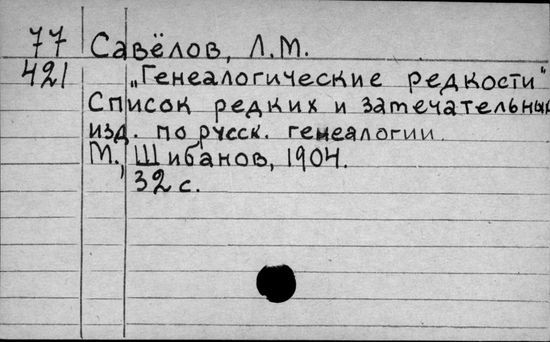 77 Савёлов, Л.М.
421 „Генеалогические редкости"
Список редких и замечательных
изд. по русск. генеалогии.
М., Шибанов, 1904.
32 с.